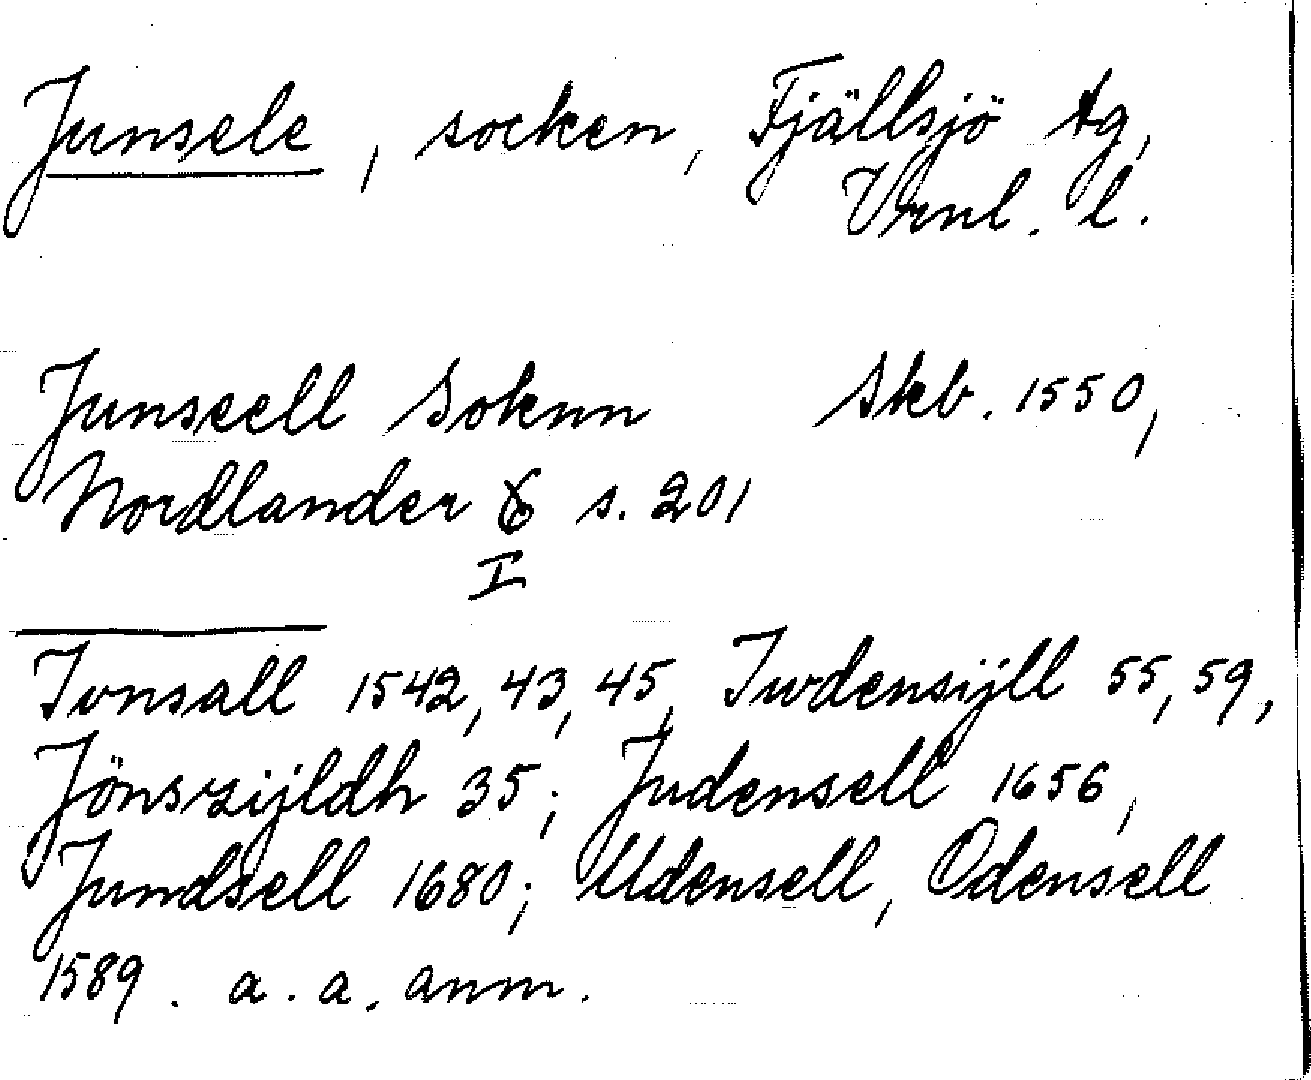 Junsele, socken, Fjällsjö tg,
Vrnl. l.
Junseell Soknn Skb. 1550,
Nordlander 6 s. 201
I
Jvnsall 1542, 43, 45, Jwdensijll 55, 59,
Jönszijldh 35; Judensell 1656,
Jundsell 1680; Udensell, Odensell
1589. a. a. anm.